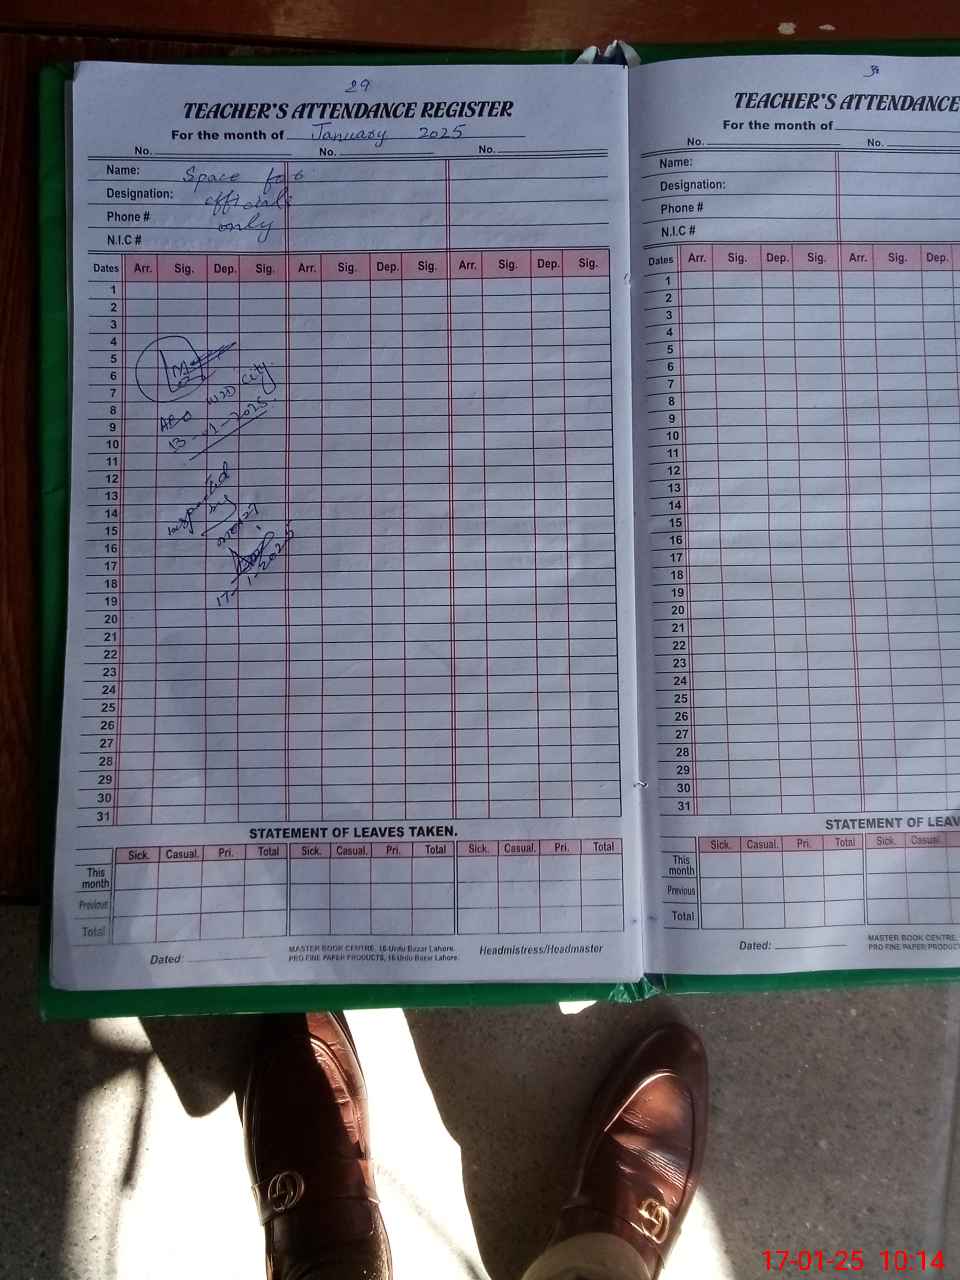 29
TEACHER'S ATTENDANCE REGISTER
For the month of January 2025
No. No. No.
Name: Space for
Designation: officials
Phone # only
N.I.C #
Dates Arr. Sig. Dep. Sig. Arr. Sig. Dep. Sig. Arr. Sig. Dep. Sig.
1
2
3
4
5
6
7
8
9
10
11
12
13
14
15
16
17
18
19
20
21
22
23
24
25
26
27
28
29
30
31
AEO W2D City
13-01-2025
Inspected
by
17-1-2025
STATEMENT OF LEAVES TAKEN.
Sick. Casual. Pri. Total Sick. Casual. Pri. Total Sick. Casual. Pri. Total
This month
Previous
Total
Dated:
MASTER BOOK CENTRE, 16-Urdu Bazar Lahore.
PRO FINE PAPER PRODUCTS, 16-Urdu Bazar Lahore.
Headmistress/Headmaster
TEACHER'S ATTENDANCE
For the month of
No. No.
Name:
Designation:
Phone #
N.I.C #
Dates Arr. Sig. Dep. Sig. Arr. Sig. Dep.
1
2
3
4
5
6
7
8
9
10
11
12
13
14
15
16
17
18
19
20
21
22
23
24
25
26
27
28
29
30
31
STATEMENT OF LEAV
Sick. Casual. Pri. Total Sick. Casual.
This month
Previous
Total
Dated:
MASTER BOOK CENTRE,
PRO FINE PAPER PRODUCT
17-01-25 10:14